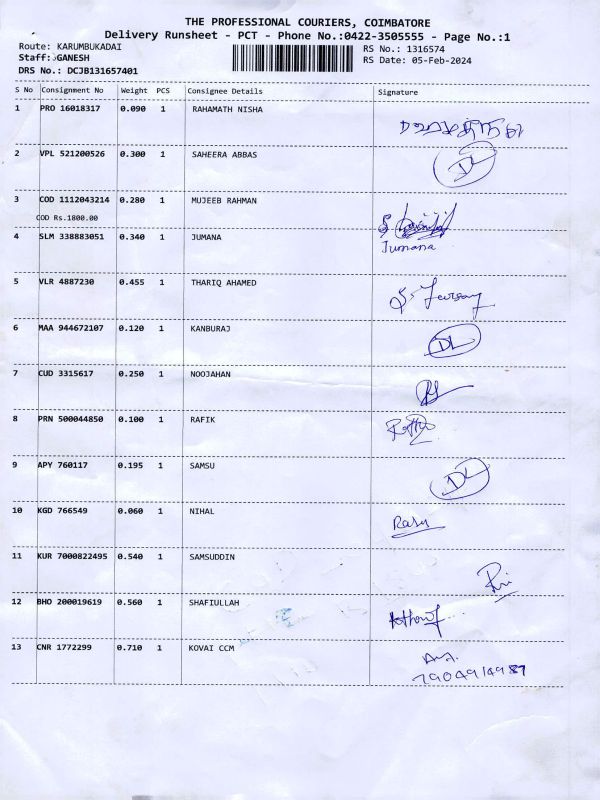 THE PROFESSIONAL COURIERS, COIMBATORE
Delivery Runsheet - PCT - Phone No.:0422-3505555 - Page No.:1
Route: KARUMBUKADAI RS No.: 1316574
Staff: GANESH RS Date: 05-Feb-2024
DRS No.: DCJB131657401
S No Consignment No Weight PCS Consignee Details Signature
1 PRO 16018317 0.090 1 RAHAMATH NISHA
2 VPL 521200526 0.300 1 SAHEERA ABBAS DL
3 COD 1112043214 0.280 1 MUJEEB RAHMAN
COD Rs.1800.00
4 SLM 338883051 0.340 1 JUMANA Jumana
5 VLR 4887230 0.455 1 THARIQ AHAMED
6 MAA 944672107 0.120 1 KANBURAJ DL
7 CUD 3315617 0.250 1 NOOJAHAN
8 PRN 500044850 0.100 1 RAFIK
9 APY 760117 0.195 1 SAMSU DL
10 KGD 766549 0.060 1 NIHAL Rasu
11 KUR 7000822495 0.540 1 SAMSUDDIN
12 BHO 200019619 0.560 1 SHAFIULLAH
13 CNR 1772299 0.710 1 KOVAI CCM